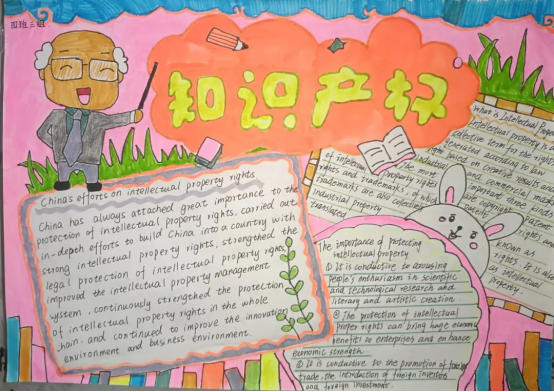 四班三组
知识产权
China's efforts on intellectual property rights
China has always attached great importance to the
protection of intellectual property rights, carried out
in-depth efforts to build China into a country with
strong intellectual property rights, strengthened the
legal protection of intellectual property rights,
improved the intellectual property management
system, continuously strengthed the protection
of intellectual property rights in the whole
chain, and continued to improve the innovation
environment and business environment.
What is Intellectual
intellectual property is
collective term for the rights
generated according to law
based on creative results and
commercial
important three kinds
of intellectual property rights
The most
rights and trademarks, of which
patent
trademarks are also collectively
industrial property
known as
rights. It is also
translated
as intellectual
property
The importance of protecting
intellectual property
① It is conducive to arousing
people's enthusiasm in scientific
and technological research and
literary and artistic creation.
② The protection of intellectual
proper rights can bring huge economic
benefits to enterprises and enhance
economic strength.
③ It is conducive to the promotion of foreign
trade, the introduction of foreign investors
and foreign investment.